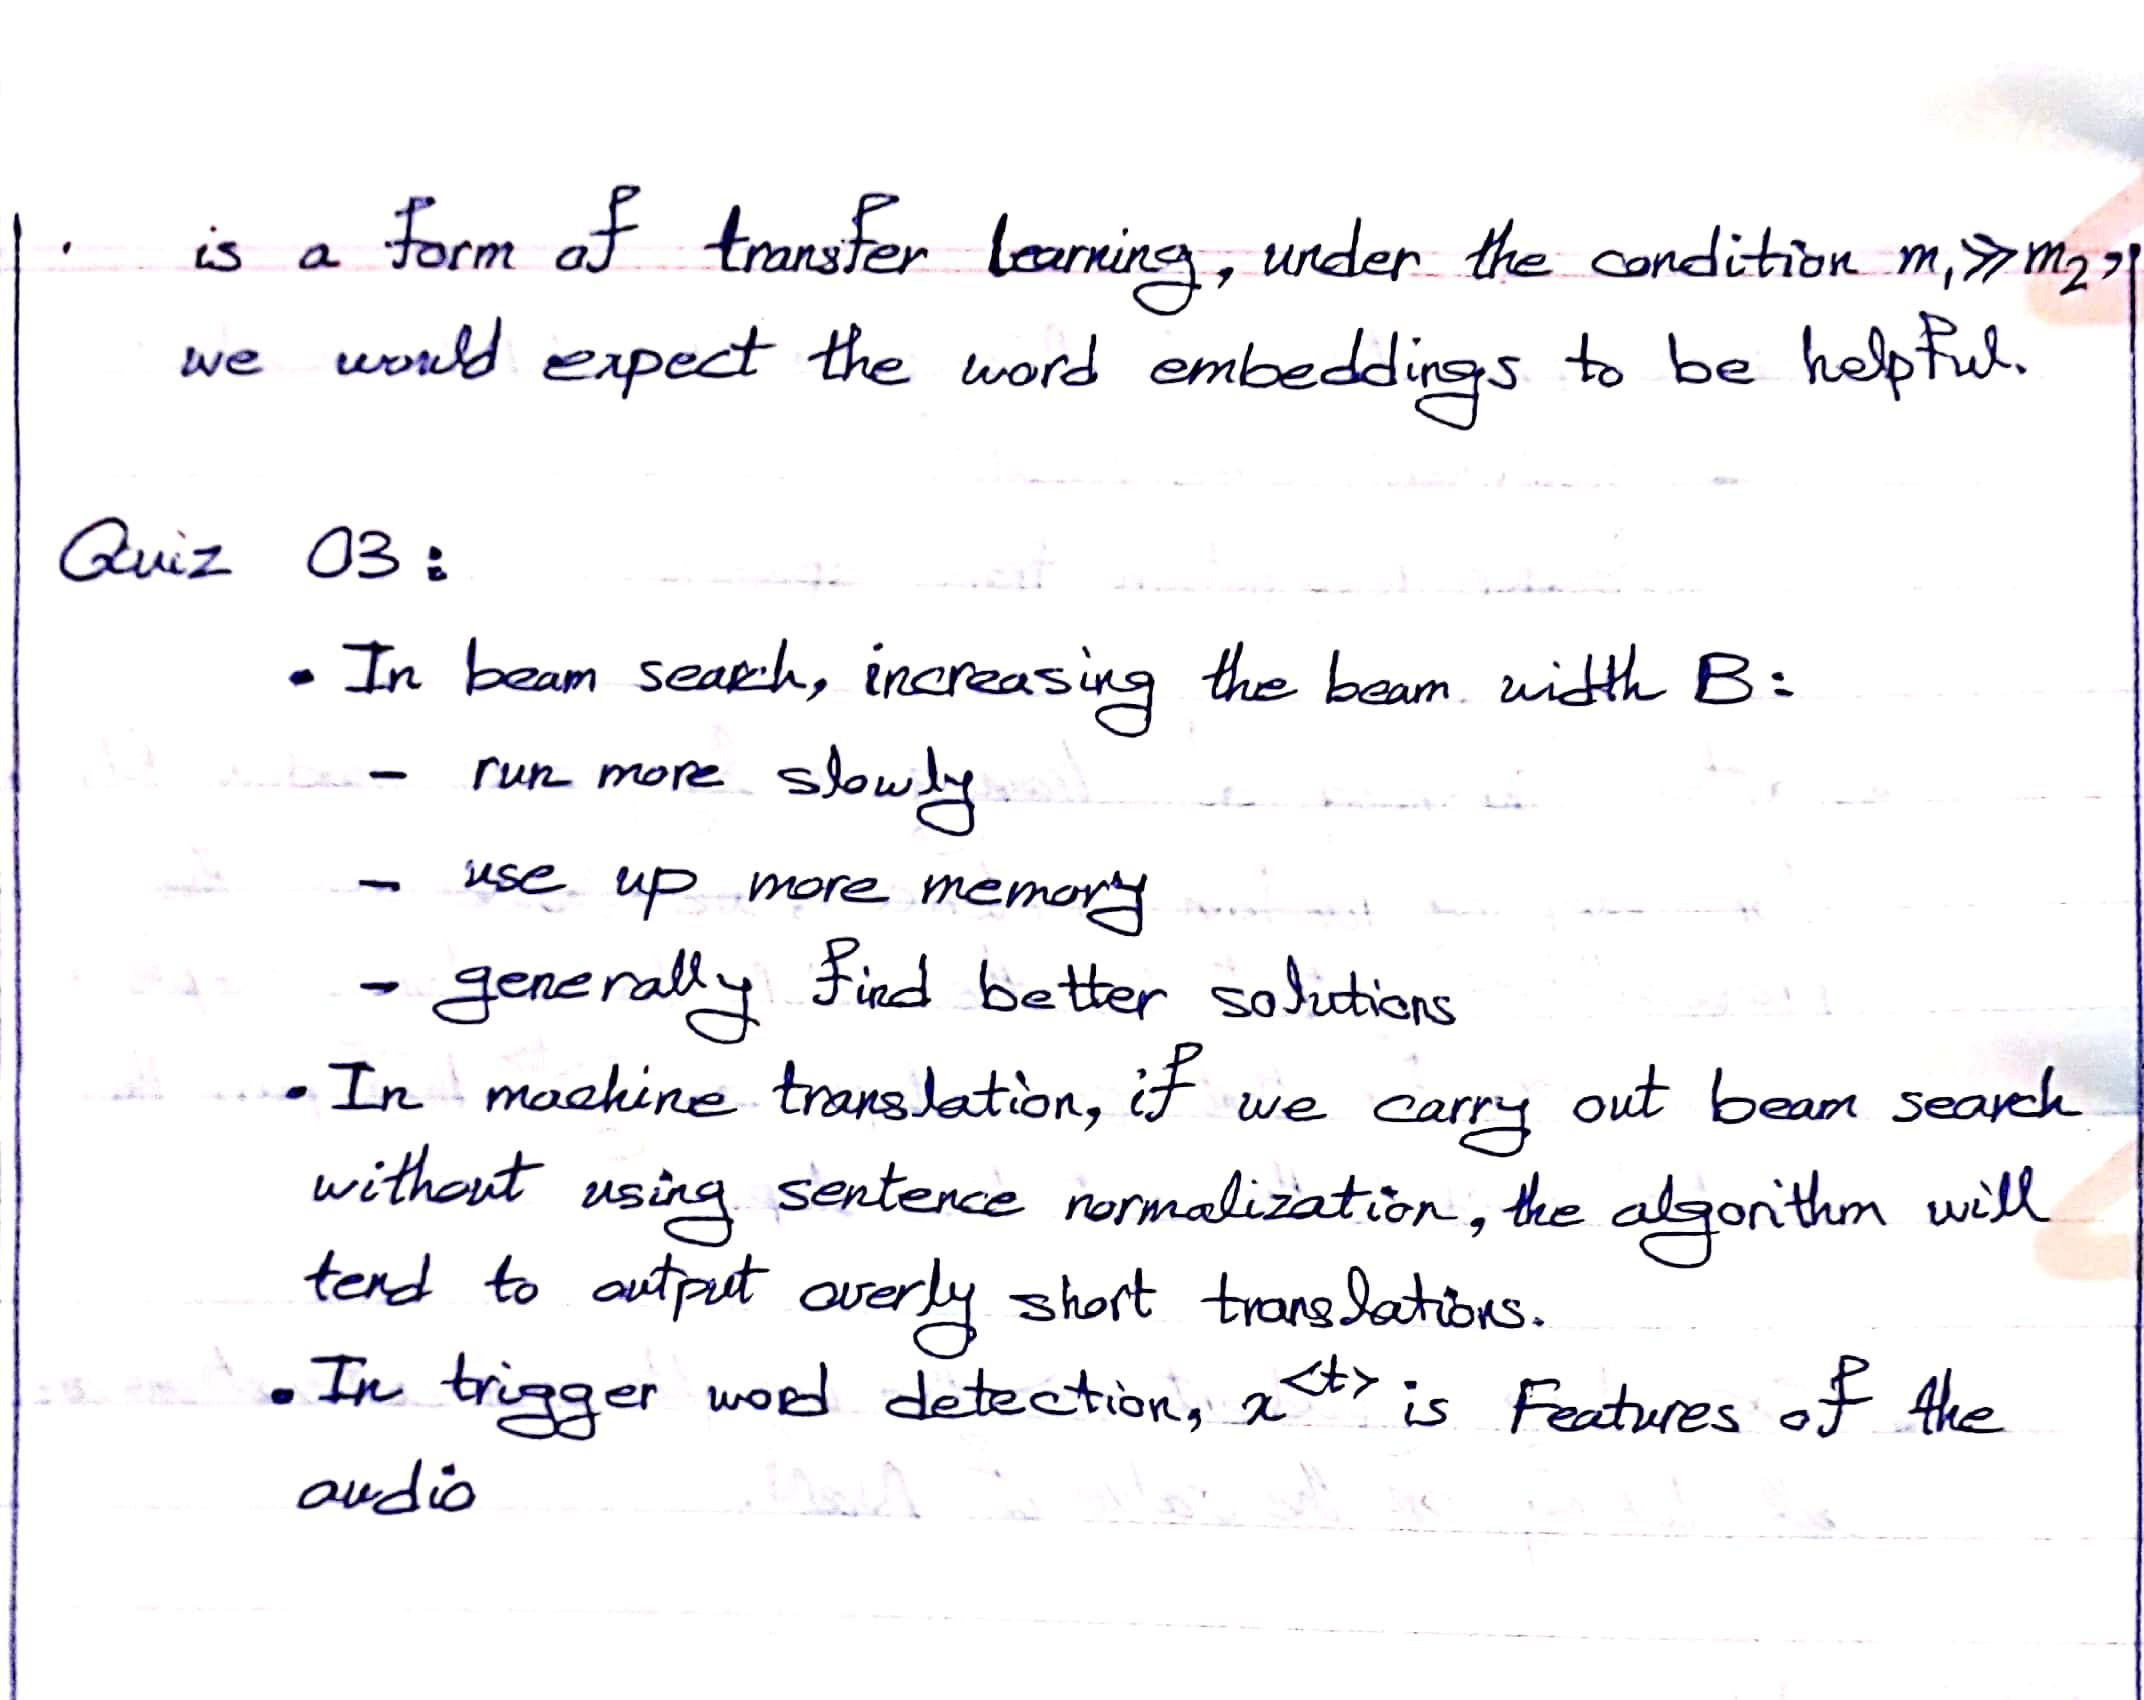 is a form of transfer learning, under the condition m₁≫m₂,
we would expect the word embeddings to be helpful.
Quiz 03:
• In beam search, increasing the beam width B:
- run more slowly
- use up more memory
- generally find better solutions
• In machine translation, if we carry out beam search
without using sentence normalization, the algorithm will
tend to output overly short translations.
• In trigger word detection, x<t> is Features of the
audio